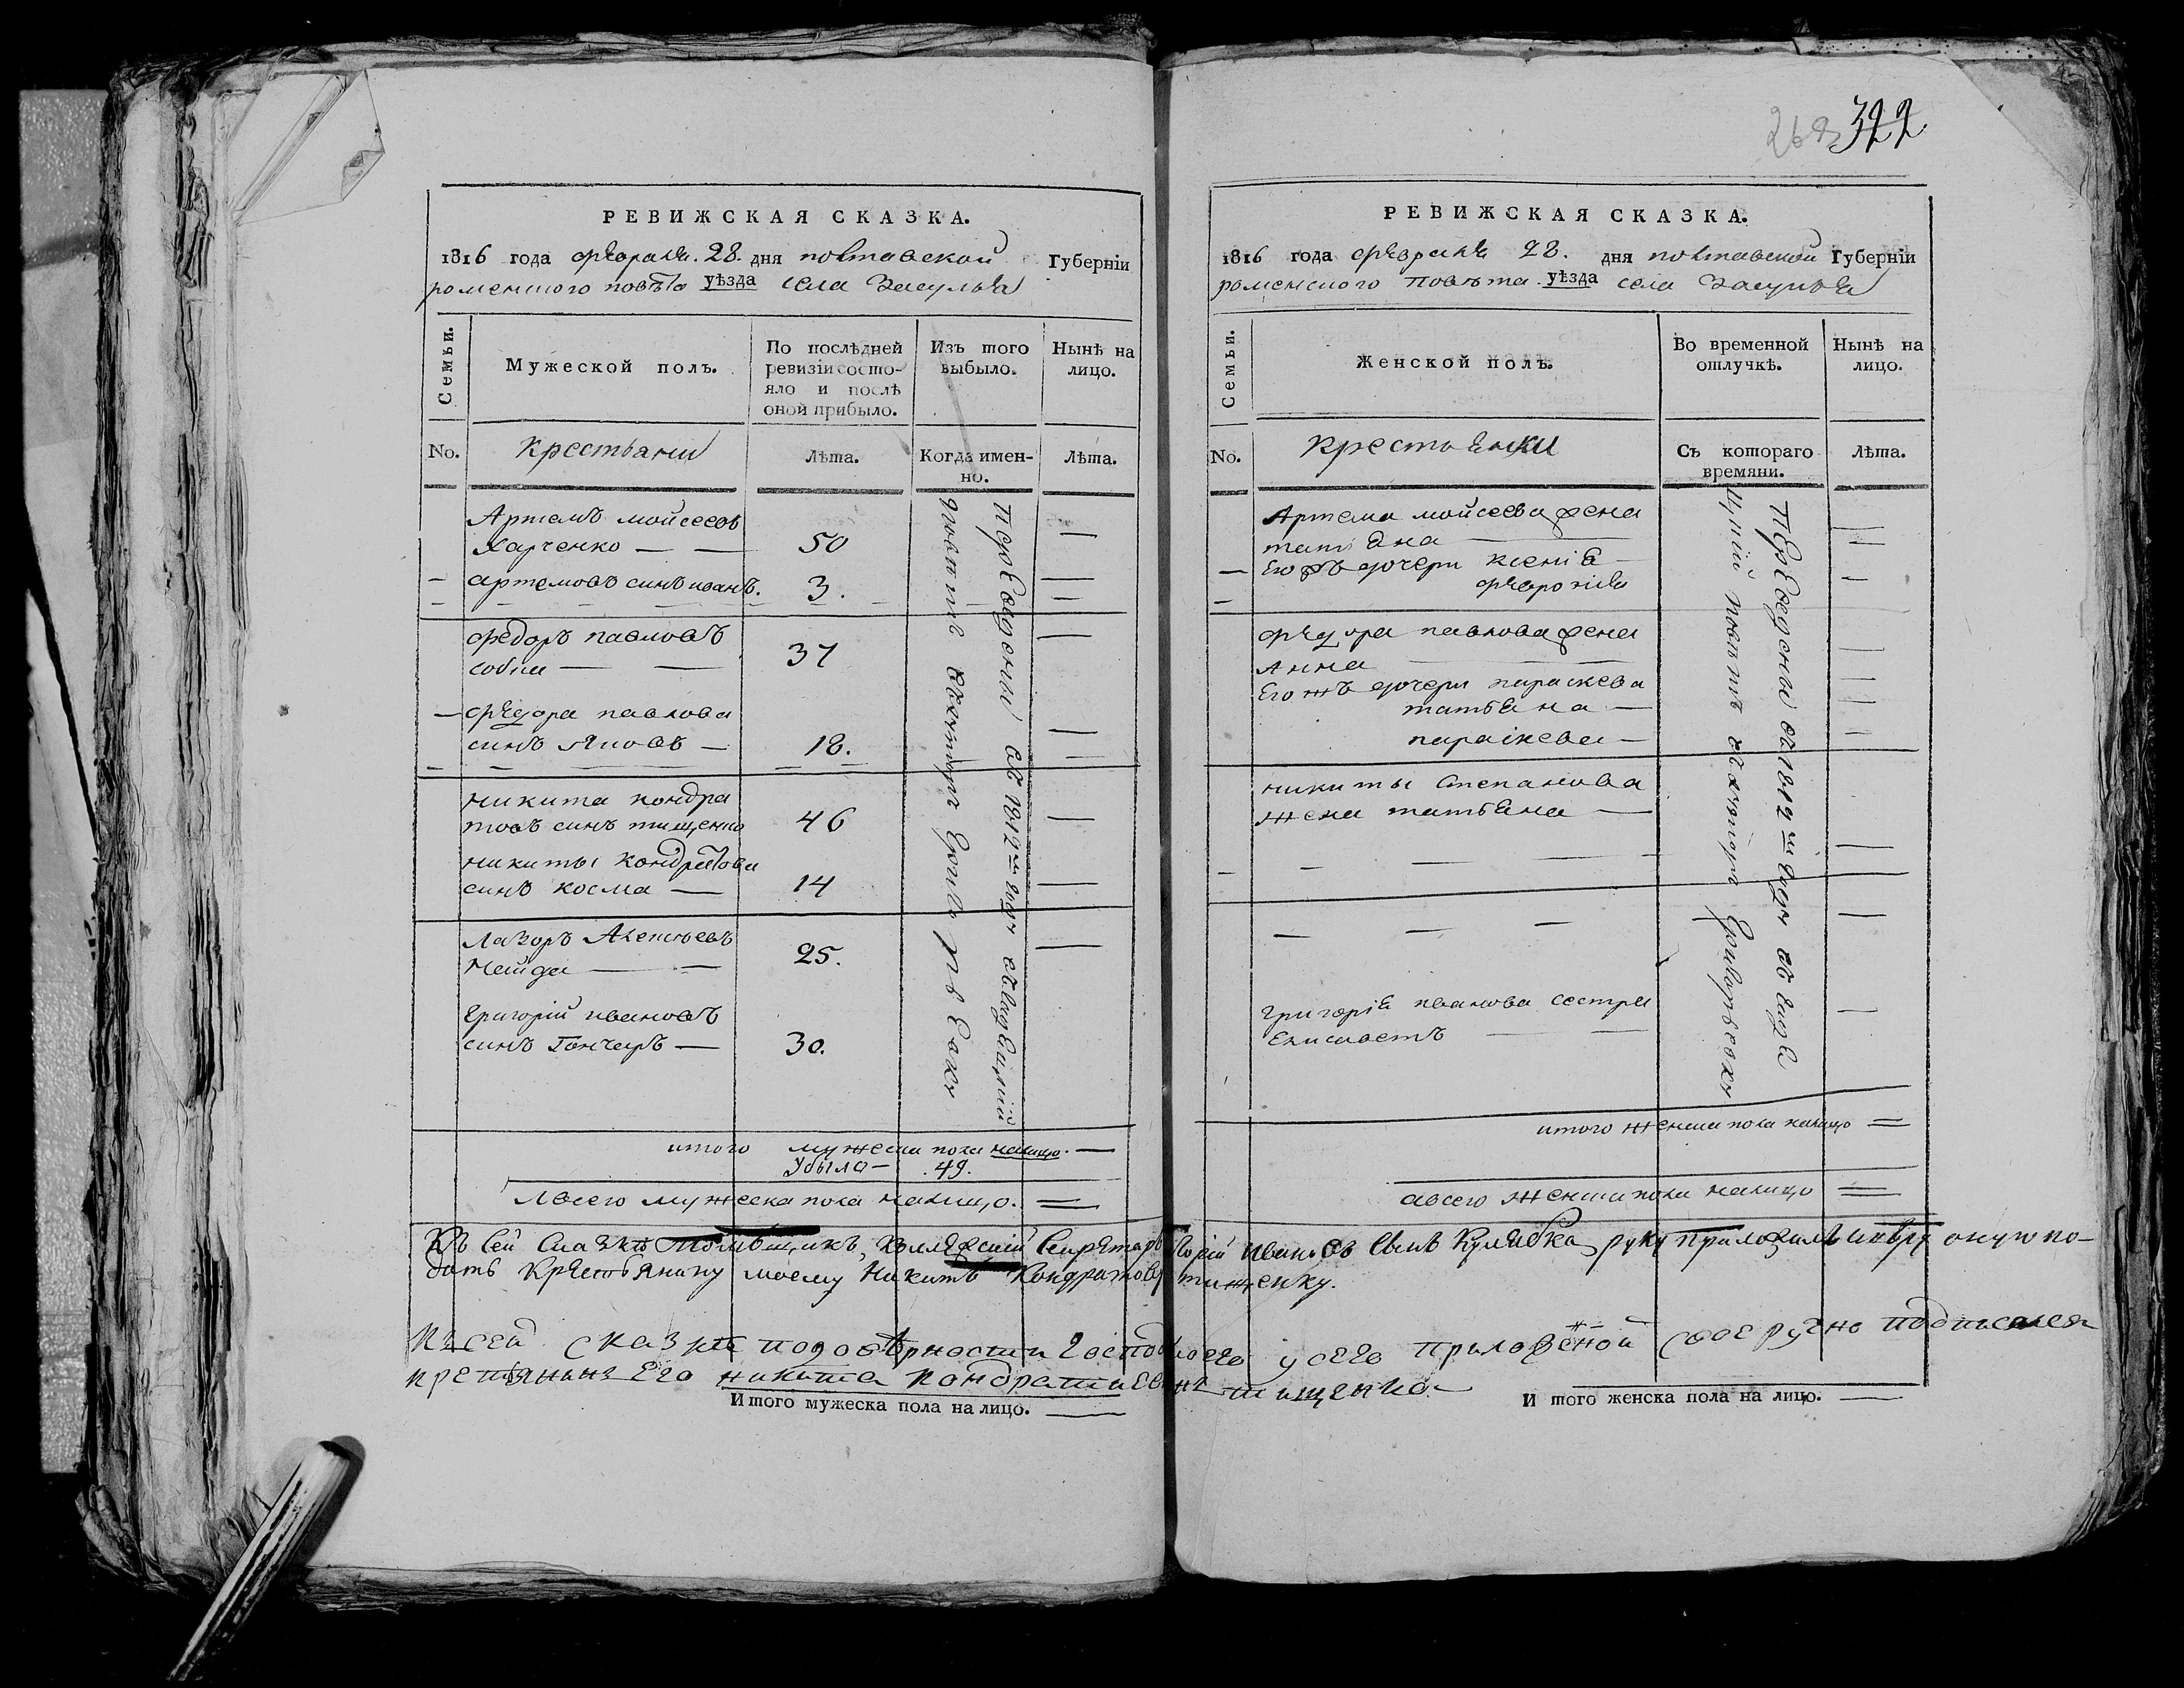 РЕВИЖСКАЯ СКАЗКА.
1816 года февраля. 28. дня полтавской Губерніи
роменского повѣта уѣзда села Засулья
Семьи.
Мужеской полъ.
По послѣдней
ревизіи состо-
яло и послѣ
оной прибыло.
Изъ того
выбыло.
Нынѣ на
лицо.
No.
крестьяни
Лѣта.
Когда имен-
но.
Лѣта.
Артемъ мойсеевъ
Харченко — — 50 —
— артемовъ синъ иванъ. 3. —
федоръ павловъ —
37
— федора павлова
синъ Яковъ — 18. —
никита кондра
товъ синъ тищенко 46 —
никиты кондратова
синъ косма — 14 —
Лазоръ
— — 25. —
григорій ивановъ
синъ Гончаръ — 30.
Переведени въ 1812м году
итого мужеска пола налицо. —
убыло — 49.
Авсего мужеска пола налицо. —
322
РЕВИЖСКАЯ СКАЗКА.
1816 года февраля 28. дня полтавской Губерніи
роменского повѣта уѣзда села Засулья
Семьи.
Женской полъ.
Во временной
отлучкѣ.
Нынѣ на
лицо.
No.
крестьянки
Съ котораго
времяни.
Лѣта.
Артема мойсеева жена
татіяна —
— Его жъ дочери ксенія —
феврониія
федора павлова жена
Анна — — —
Его жъ дочери параскева
татьяна —
параскева —
никиты Степанова
жена татьяна —
григорія иванова сестра
Елисаветъ — —
Переведени въ 1812м году
итого женска пола налицо —
авсего женска пола налицо —
Къ сей Сказкѣ помѣщикъ, Коллежскій Секретарь ивановъ Сынъ Кулябка руку приложилъ и вѣрю оную по-
дать Крестьянину моему Никитѣ Кондратову тищенку.
Къ сей сказкѣ по довѣрности Господина моего у сего приложеной своеручно подписался
крестьянинъ Его никита кондратиевъ синъ тищенко —
И того мужеска пола на лицо. —
И того женска пола на лицо. —